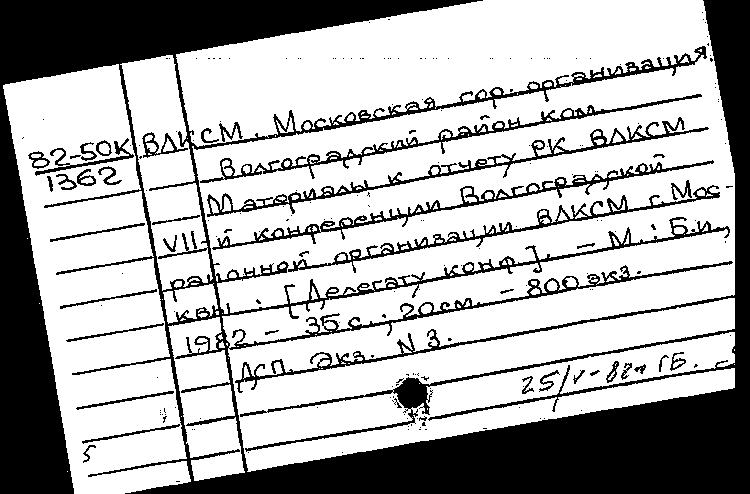 82-50К
1362
ВЛКСМ. Московская гор. организация.
Волгоградский район ком.
Материалы к отчету РК ВЛКСМ
VII-й конференции Волгоградской
районной организации ВЛКСМ г. Мос-
квы : [Делегату конф]. – М. : Б.и.,
1982. – 35 с. ; 20 см. – 800 экз.
ДСП. Экз. N 3.
25/V-82 г ГБ.
5